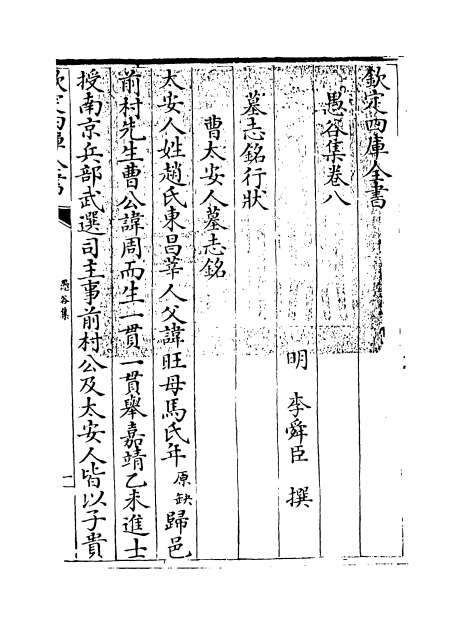 欽定四庫全書
愚谷集卷八
明 李舜臣 撰
墓志銘行狀
曹太安人墓志銘
太安人姓趙氏東昌莘人父諱旺母馬氏年原缺歸邑
前村先生曹公諱周而生一貫一貫舉嘉靖乙未進士
授南京兵部武選司主事前村公及太安人皆以子貴
欽定四庫全書
愚谷集
一